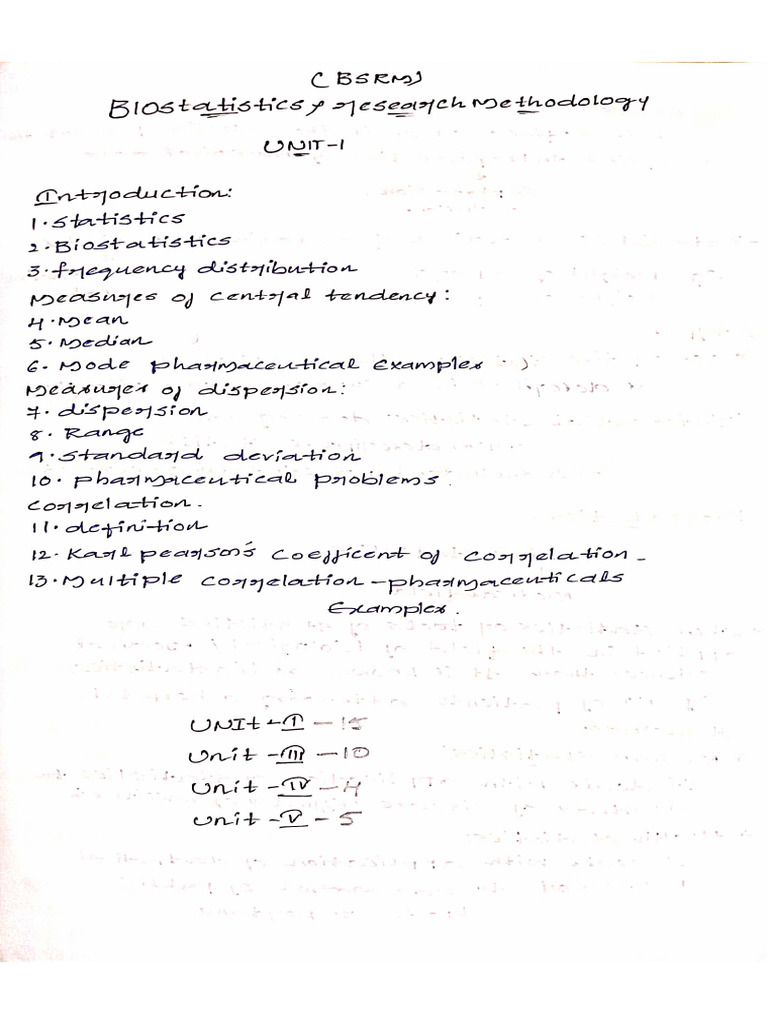 (BSRM)
Biostatistics & research Methodology
UNIT-1
Introduction:
1. statistics
2. Biostatistics
3. frequency distribution
Measures of central tendency:
4. Mean
5. Median
6. Mode pharmaceutical examples
Measures of dispersion:
7. dispersion
8. Range
9. standard deviation
10. pharmaceutical problems.
correlation.
11. definition
12. Karl pearson's coefficent of correlation -
13. Multiple correlation - pharmaceuticals
Examples.
UNIt - I - 15
Unit - III - 10
Unit - IV - 4
Unit - V - 5